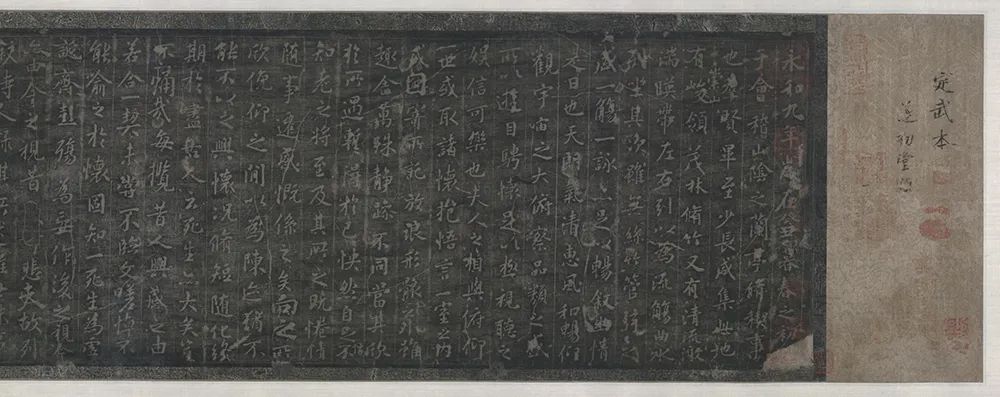 定武本
遂初堂
永和九年歲在癸丑暮春之初
于會稽山陰之蘭亭脩稧事
也羣賢畢至少長咸集此地
有崇山峻領茂林脩竹又有清流激
湍暎帶左右引以為流觴曲水
列坐其次雖無絲竹管弦之
盛一觴一詠亦足以暢敘幽情
是日也天朗氣清惠風和暢仰
觀宇宙之大俯察品類之盛
所以遊目騁懷足以極視聽之
娛信可樂也夫人之相與俯仰
一世或取諸懷抱悟言一室之內
或因寄所託放浪形骸之外雖
趣舍萬殊靜躁不同當其欣
於所遇暫得於己快然自足不
知老之將至及其所之既惓情
隨事遷感慨係之矣向之所
欣俛仰之間以為陳迹猶不
能不以之興懷況脩短隨化終
期於盡古人云死生亦大矣豈
不痛哉每攬昔人興感之由
若合一契未嘗不臨文嗟悼不
能喻之於懷固知一死生為虛
誕齊彭殤為妄作後之視今
亦由今之視昔悲夫故列